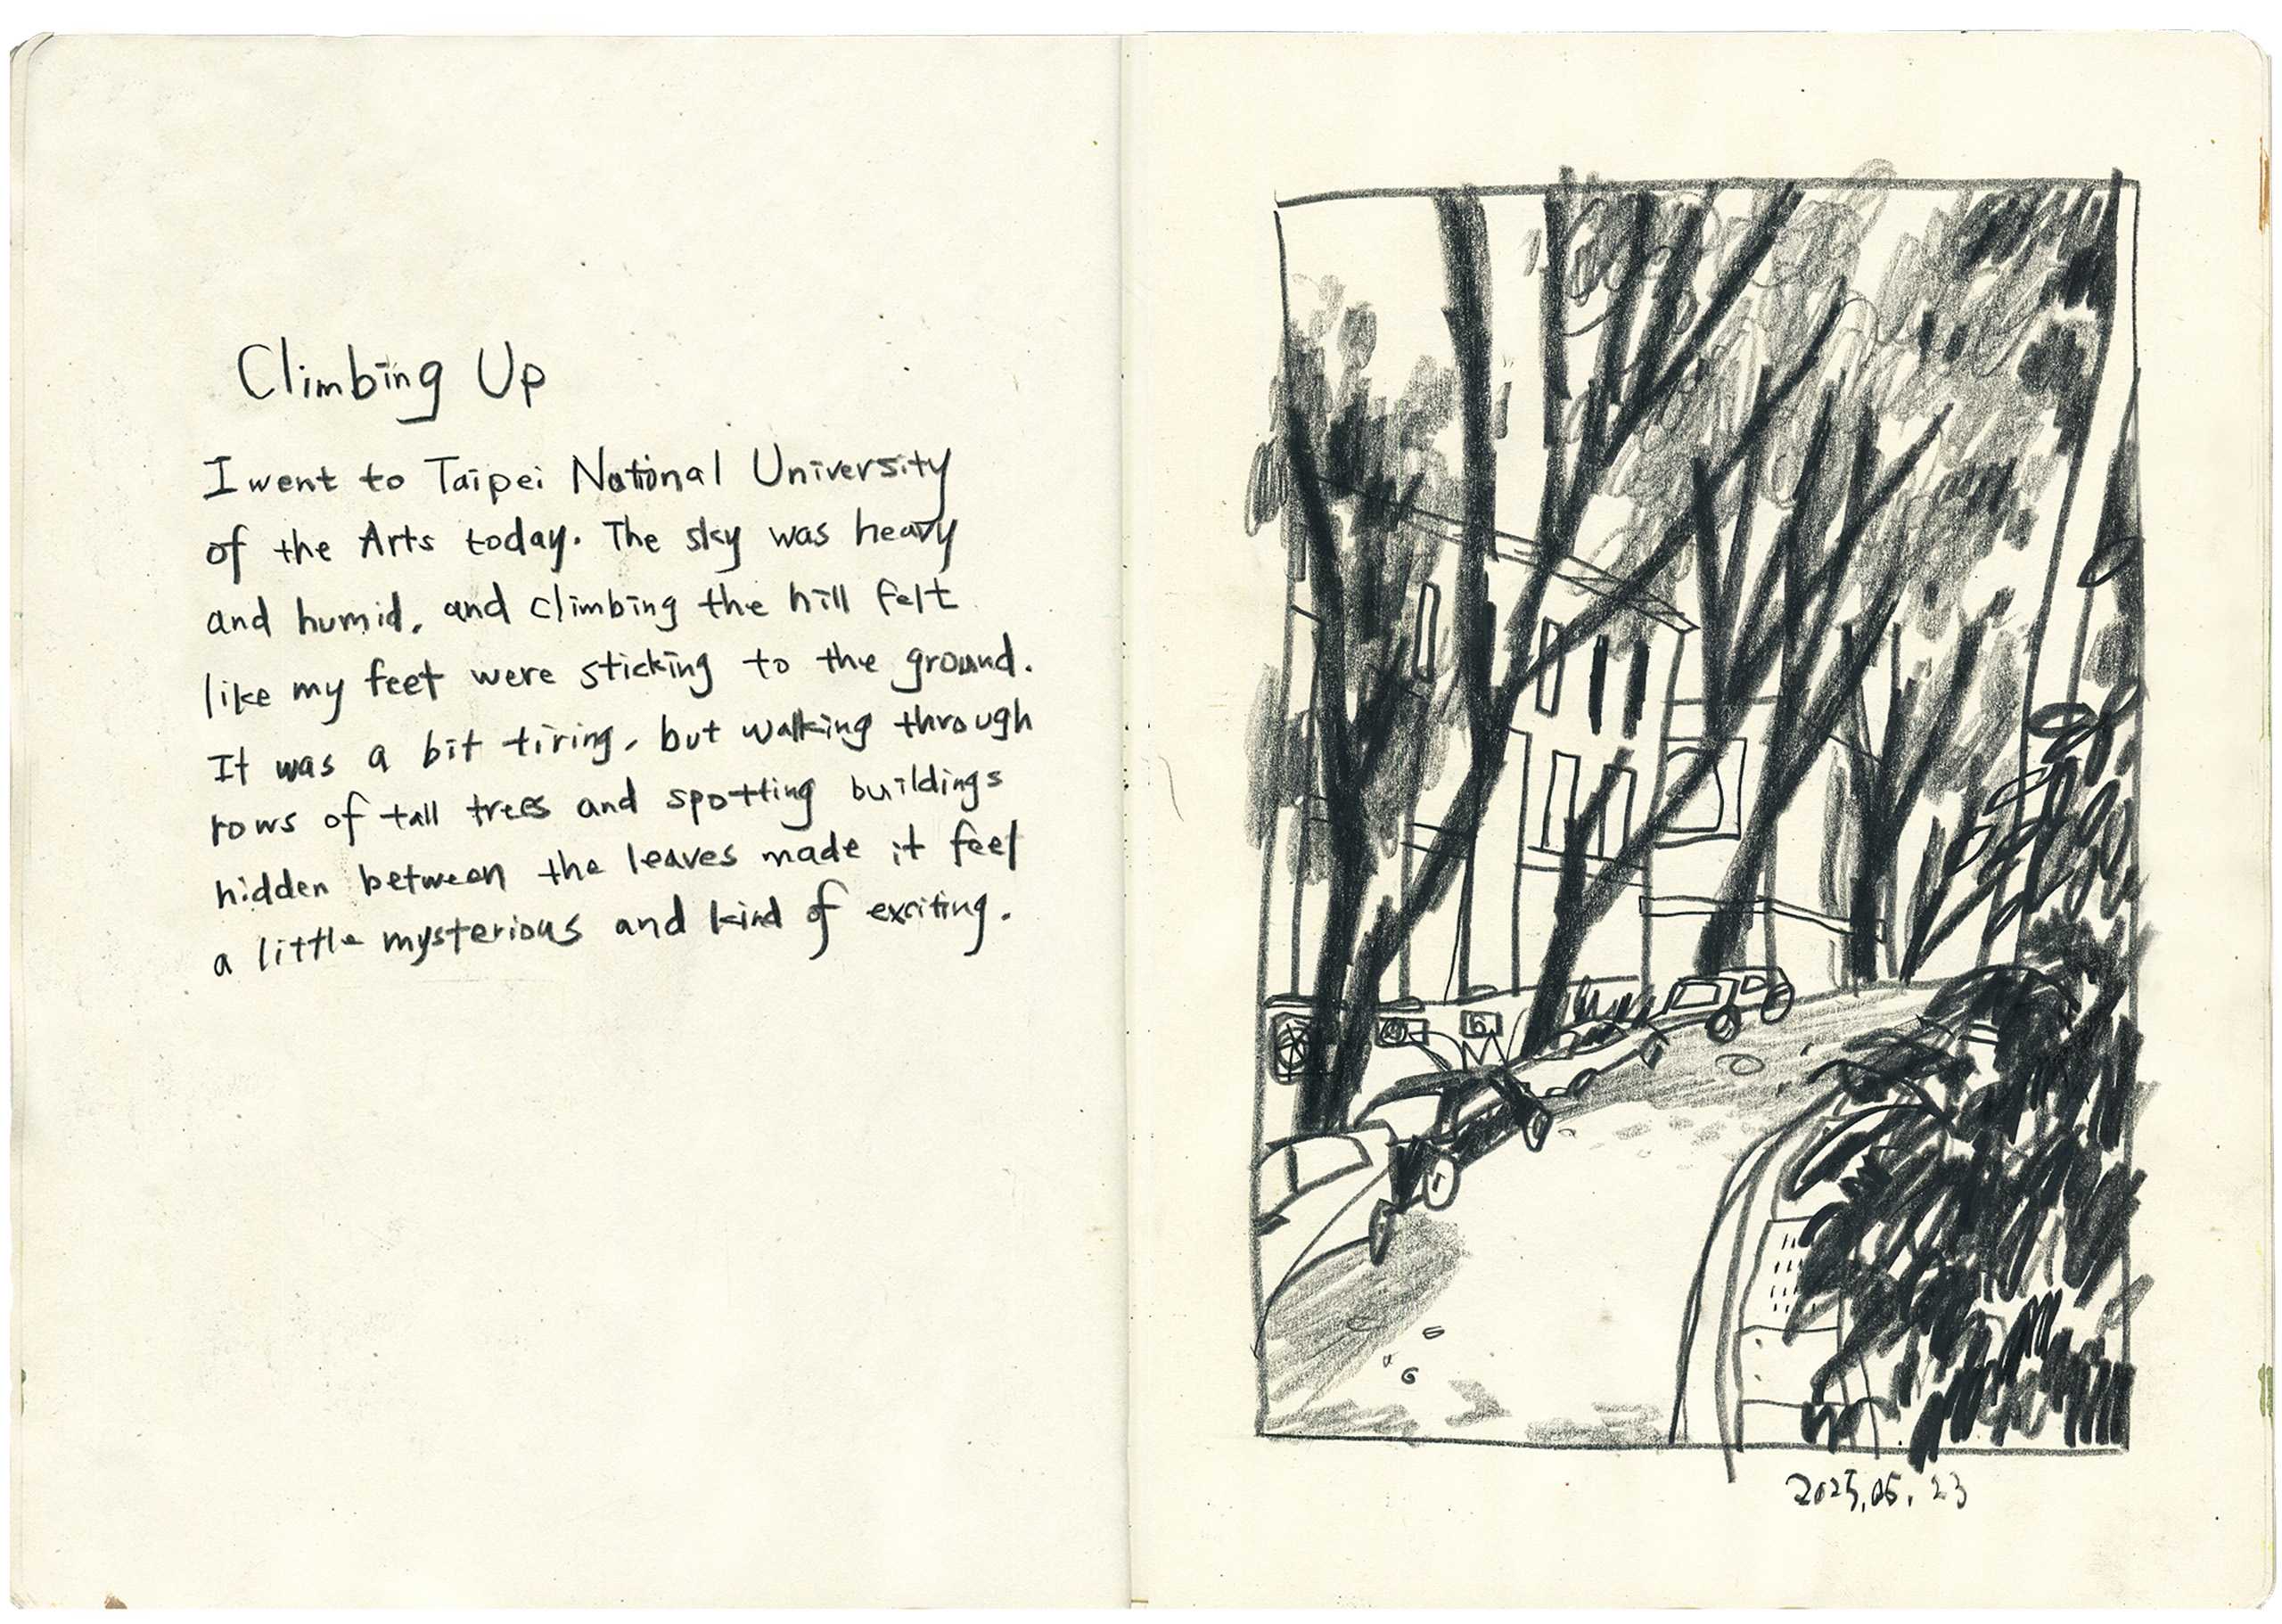 Climbing Up
I went to Taipei National University
of the Arts today. The sky was heavy
and humid, and climbing the hill felt
like my feet were sticking to the ground.
It was a bit tiring, but walking through
rows of tall trees and spotting buildings
hidden between the leaves made it feel
a little mysterious and kind of exciting.
2025.05.23